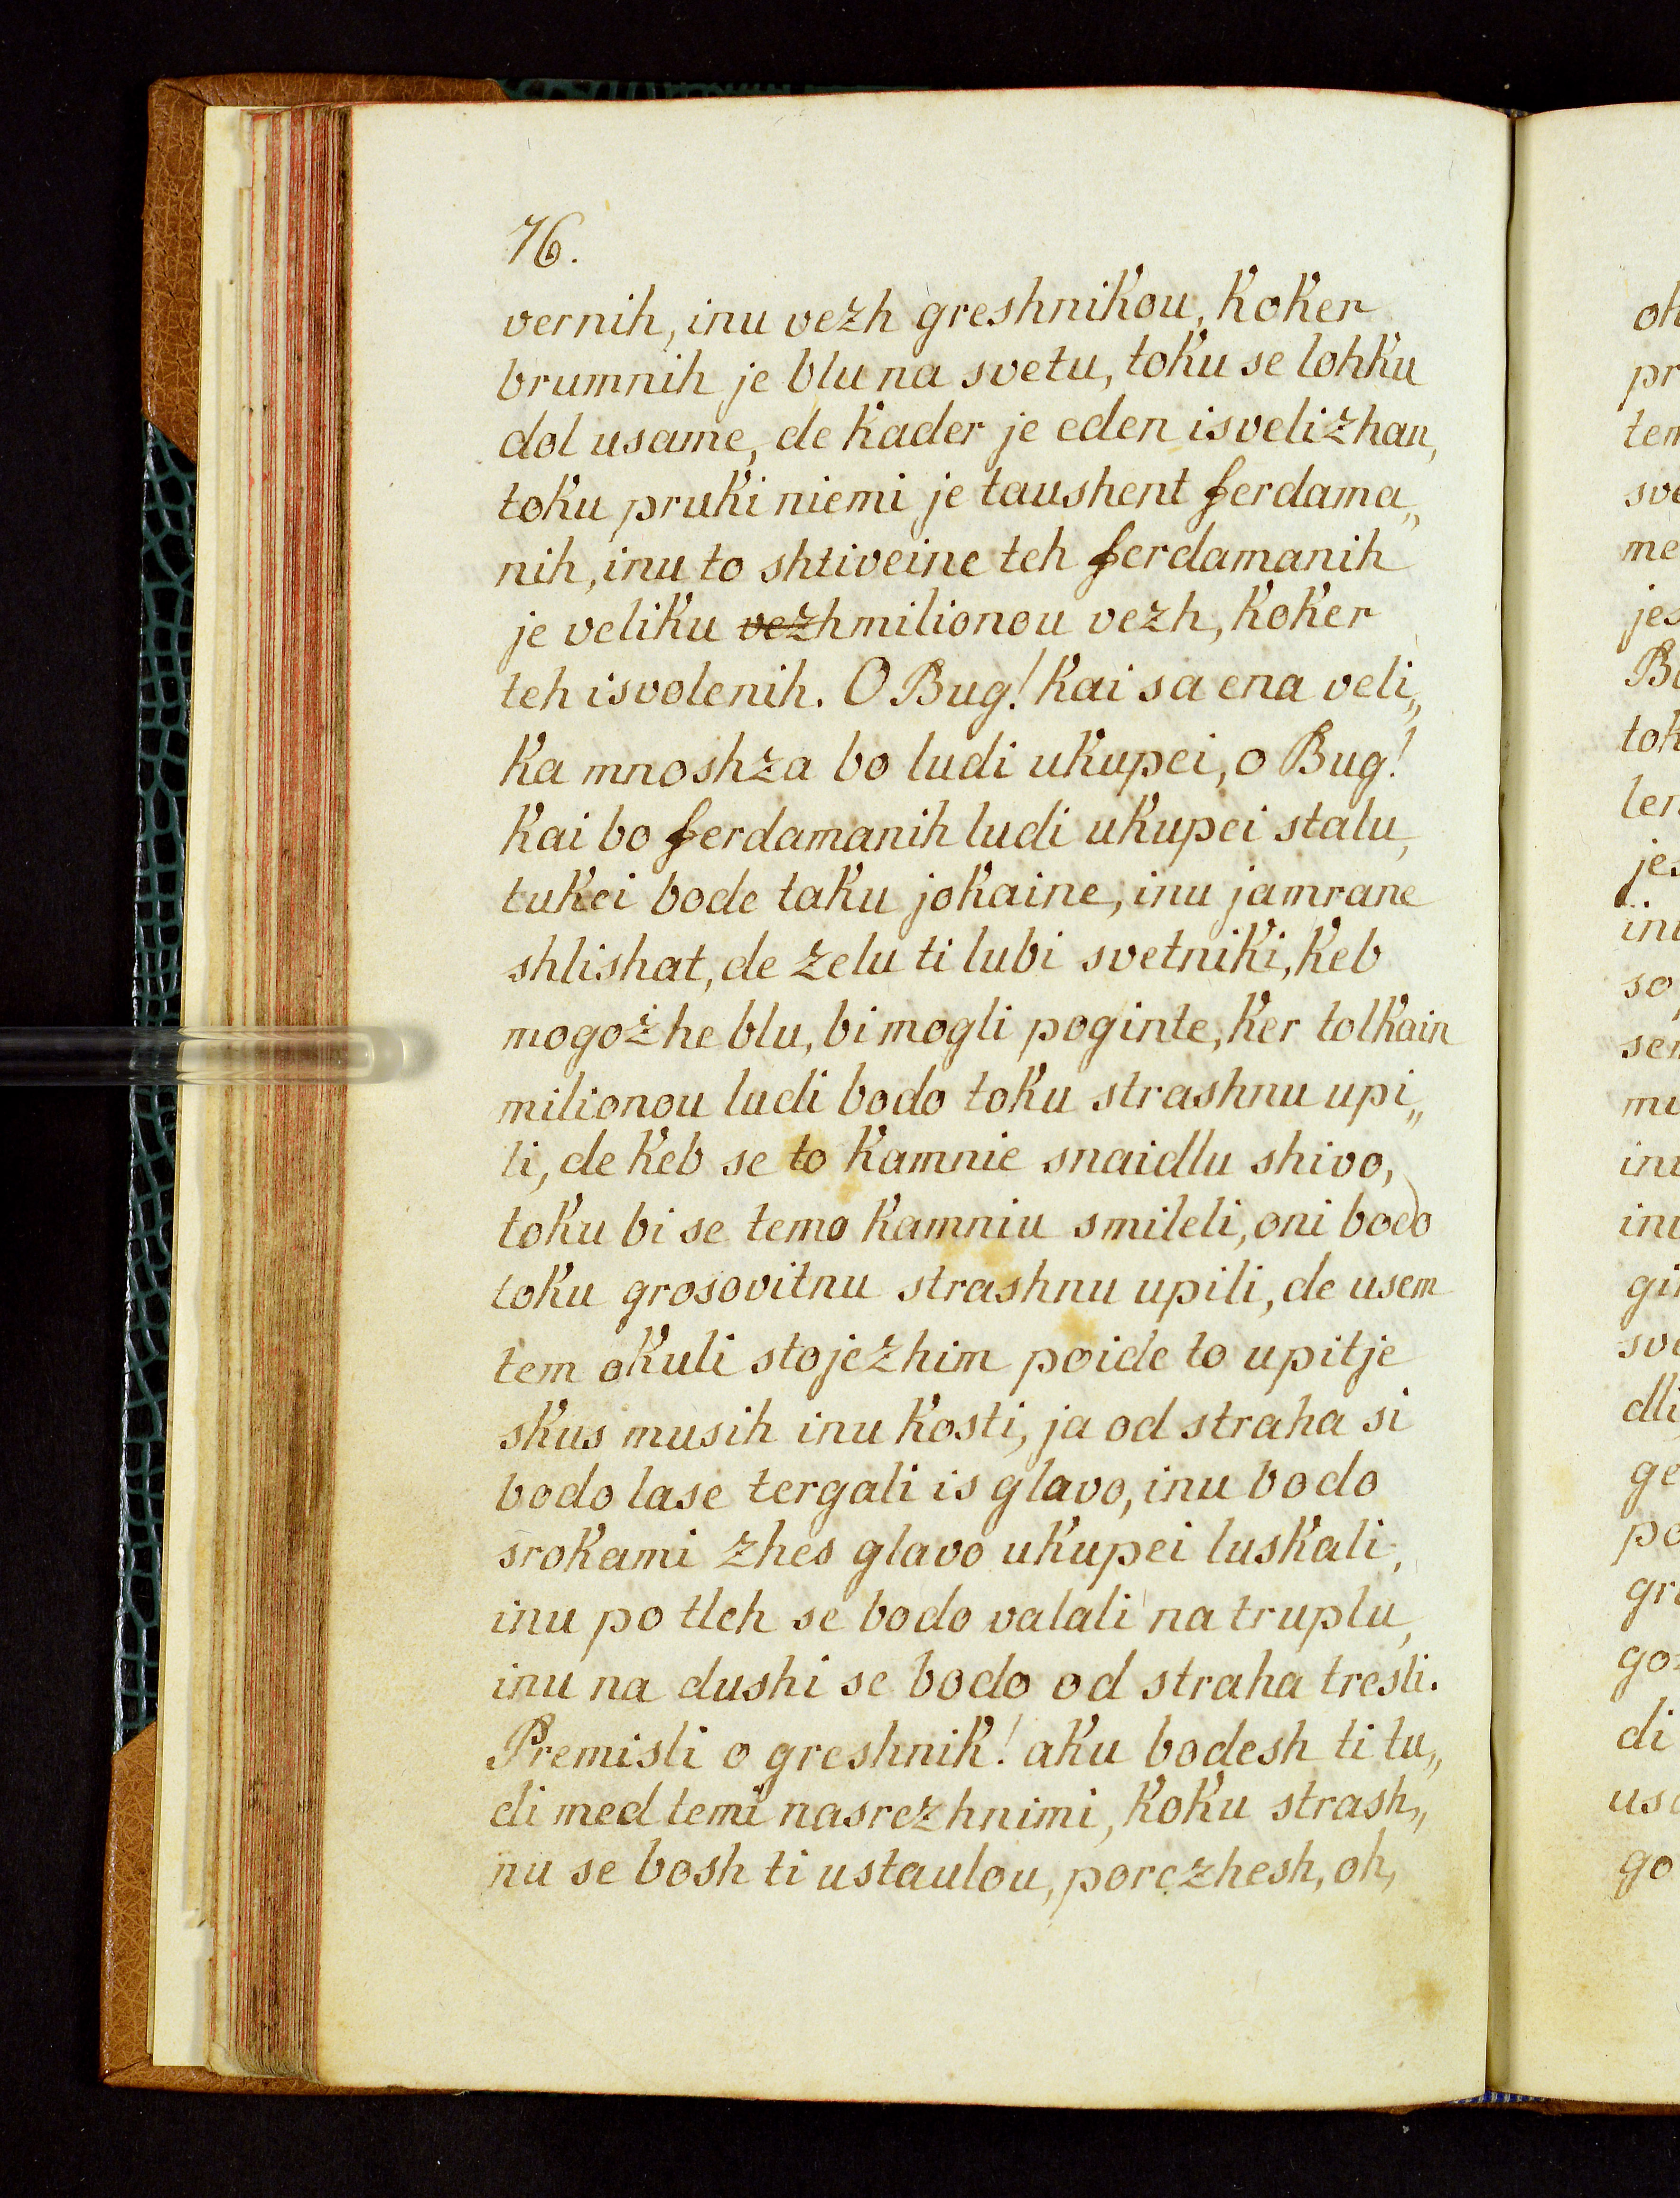 76.
vernih, inu vezh greshnikou, koker
brumnih je blu na svetu, toku se lohku
dol usame, de kader je eden isvelizhan,
toku pruki niemi je taushent ferdama„
nih, inu to shtiveine teh ferdamanih
je veliku vezh milionou vezh, koker
teh isvolenih. O Bug! kai sa ena veli„
ka mnoshza bo ludi ukupei, o Bug!
kai bo ferdamanih ludi ukupei stalu,
tukei bode taku jokaine, inu jamrane
shlishat, de zelu ti lubi svetniki, keb
mogozhe blu, bi mogli poginte, ker tolkain
milionou ludi bodo toku strashnu upi„
li, de keb se to kamnie snaidlu shivo,
toku bi se temo kamniu smileli, oni bodo
toku grosovitnu strashnu upili, de usem
tem okuli stojezhim poide to upitje
skus musih inu kosti, ja od straha si
bodo lase tergali is glavo, inu bodo
srokami zhes glavo ukupei luskali,
inu po tleh se bodo valali na truplu,
inu na dushi se bodo od straha tresli.
Premisli o greshnik! aku bodesh ti tu„
di med temi nasrezhnimi, koku strash„
nu se bosh ti ustaulou, porezhesh, oh,